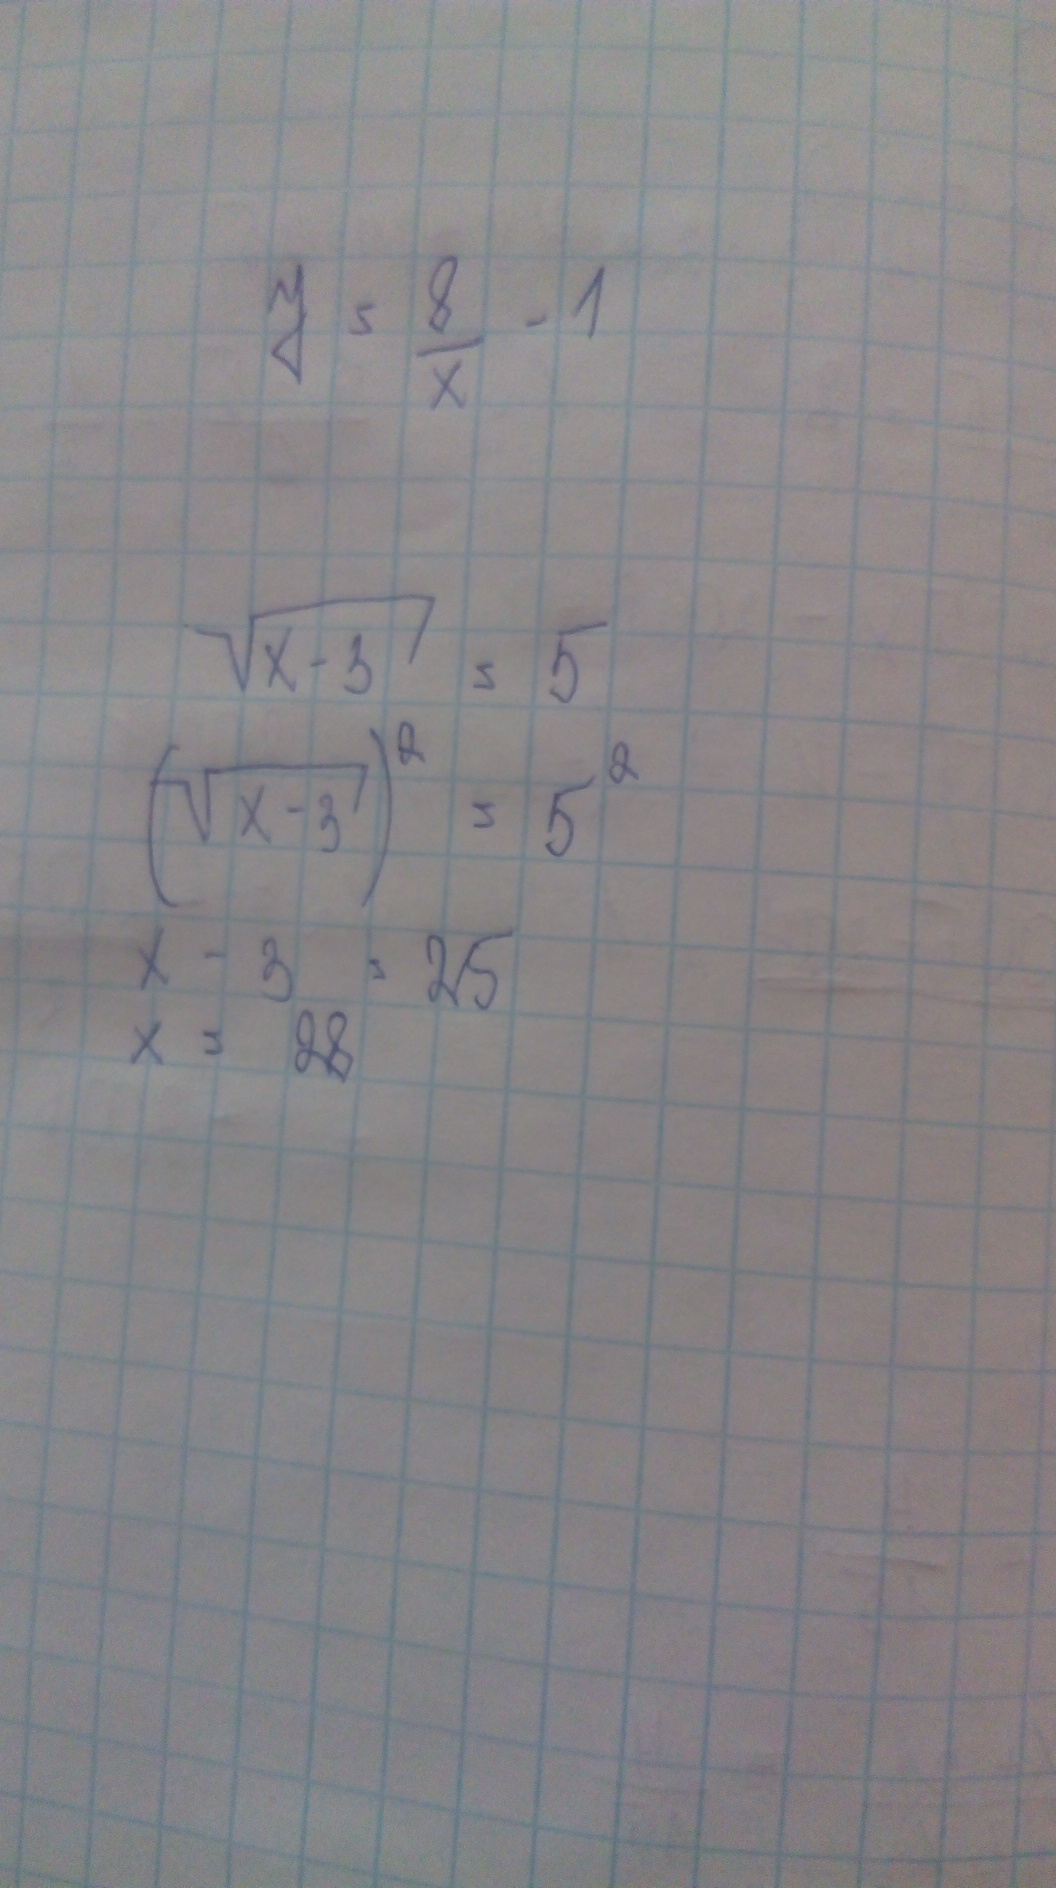 y = 8/x - 1
√(x-3) = 5
(√(x-3))² = 5²
x - 3 = 25
x = 28